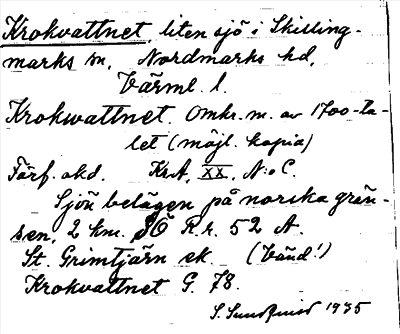 Krokvattnet, liten sjö i Skilling-
marks sn, Nordmarks hd,
Värml. l.
Krokwattnet. Omkr. m. av 1700-ta-
let (möjl. kopia)
Förf. okd. KrA, XX, N:o C.
Sjön belägen på norska grän-
sen, 2 km. SÖ R. r. 52 A.
St. Grimtjärn ek. (Vänd!)
Krokvattnet G. 78.
S. Sundqvist 1935